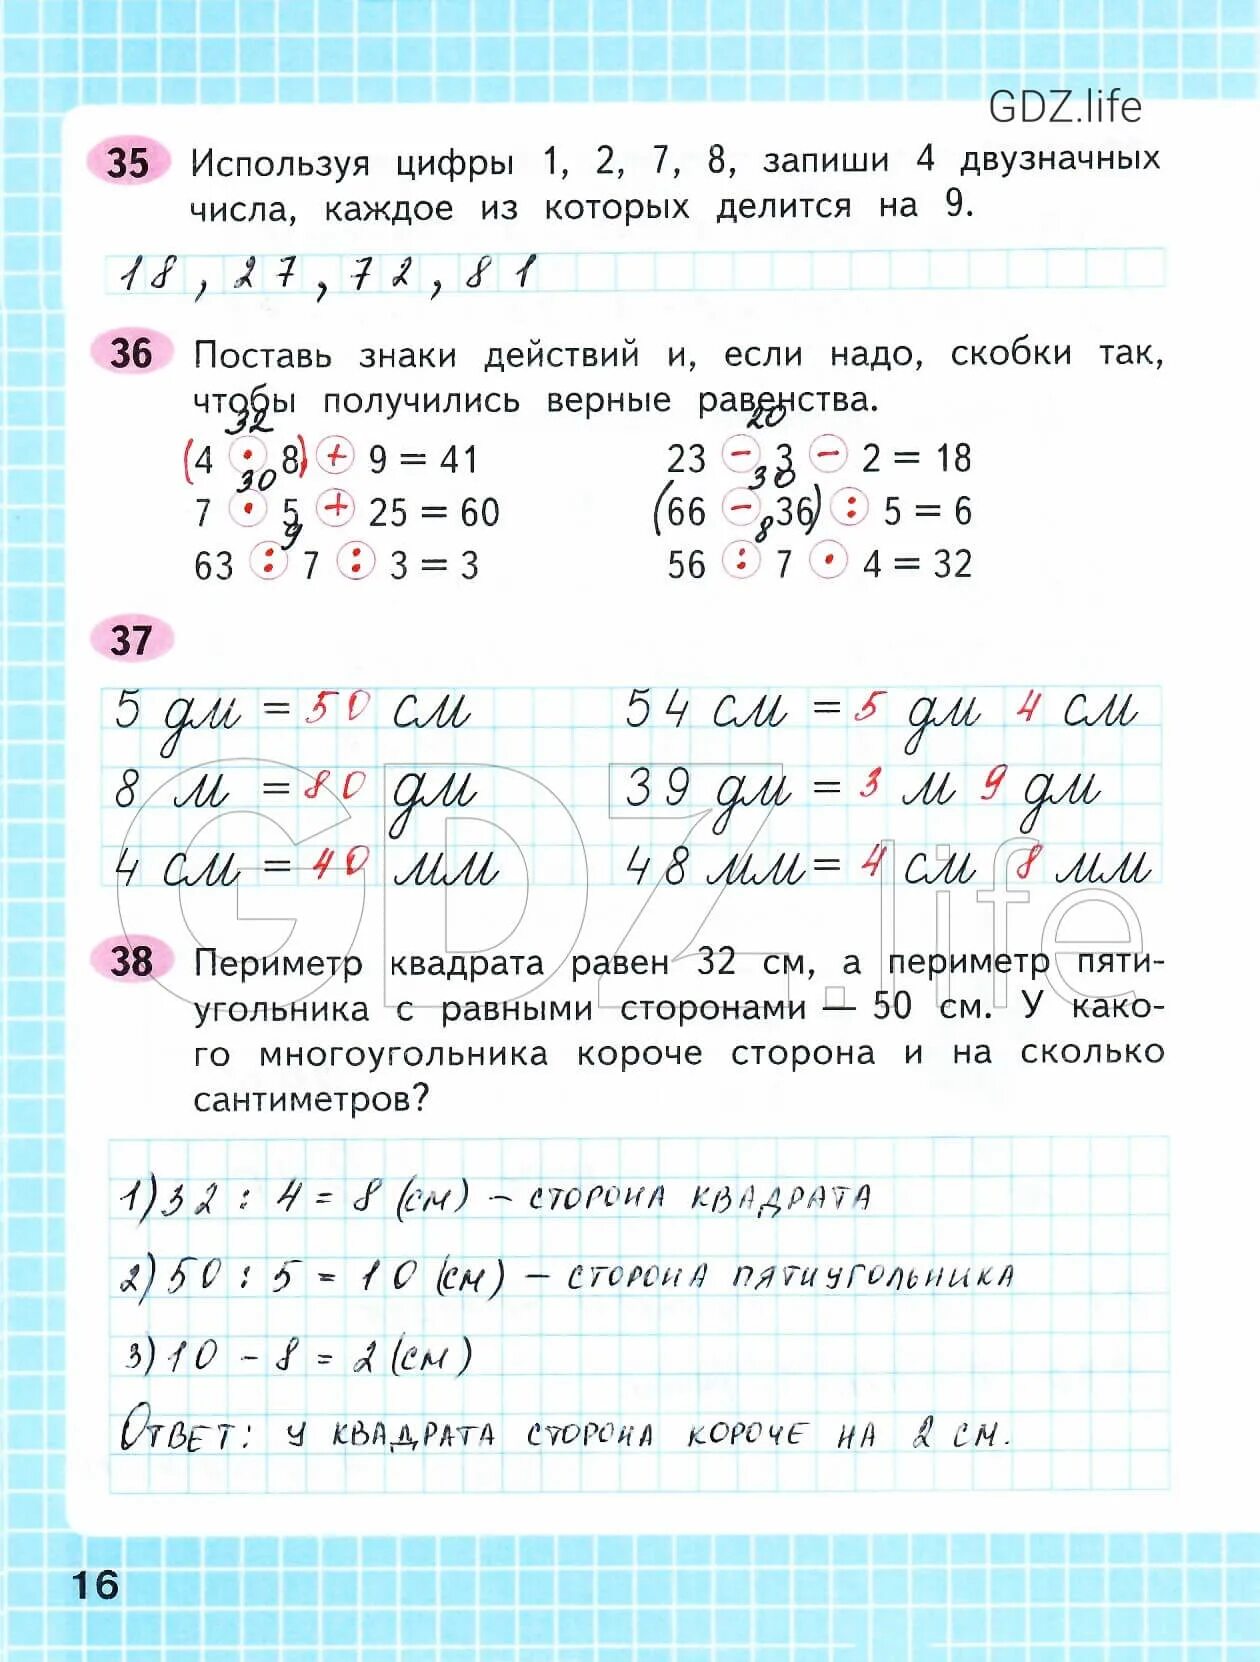 GDZ.life
35 Используя цифры 1, 2, 7, 8, запиши 4 двузначных
числа, каждое из которых делится на 9.
18, 27, 72, 81
36 Поставь знаки действий и, если надо, скобки так,
чтобы получились верные равенства.
32 20
(4 · 8) + 9 = 41 23 − 3 − 2 = 18
30 30
7 · 5 + 25 = 60 (66 − 36) : 5 = 6
9 8
63 : 7 : 3 = 3 56 : 7 · 4 = 32
37
5 дм = 50 см 54 см = 5 дм 4 см
8 м = 80 дм 39 дм = 3 м 9 дм
4 см = 40 мм 48 мм = 4 см 8 мм
GDZ.life
38 Периметр квадрата равен 32 см, а периметр пяти-
угольника с равными сторонами — 50 см. У како-
го многоугольника короче сторона и на сколько
сантиметров?
1) 32 : 4 = 8 (см) – сторона квадрата
2) 50 : 5 = 10 (см) – сторона пятиугольника
3) 10 - 8 = 2 (см)
Ответ: у квадрата сторона короче на 2 см.
16